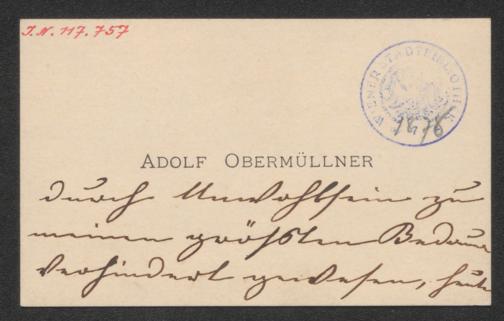 J.N. 117.757
WIENER STADTBIBLIOTHEK
ADOLF OBERMÜLLNER
durch Unwohlsein zu
meinen größten Bedauern
verhindert gewesen, heute